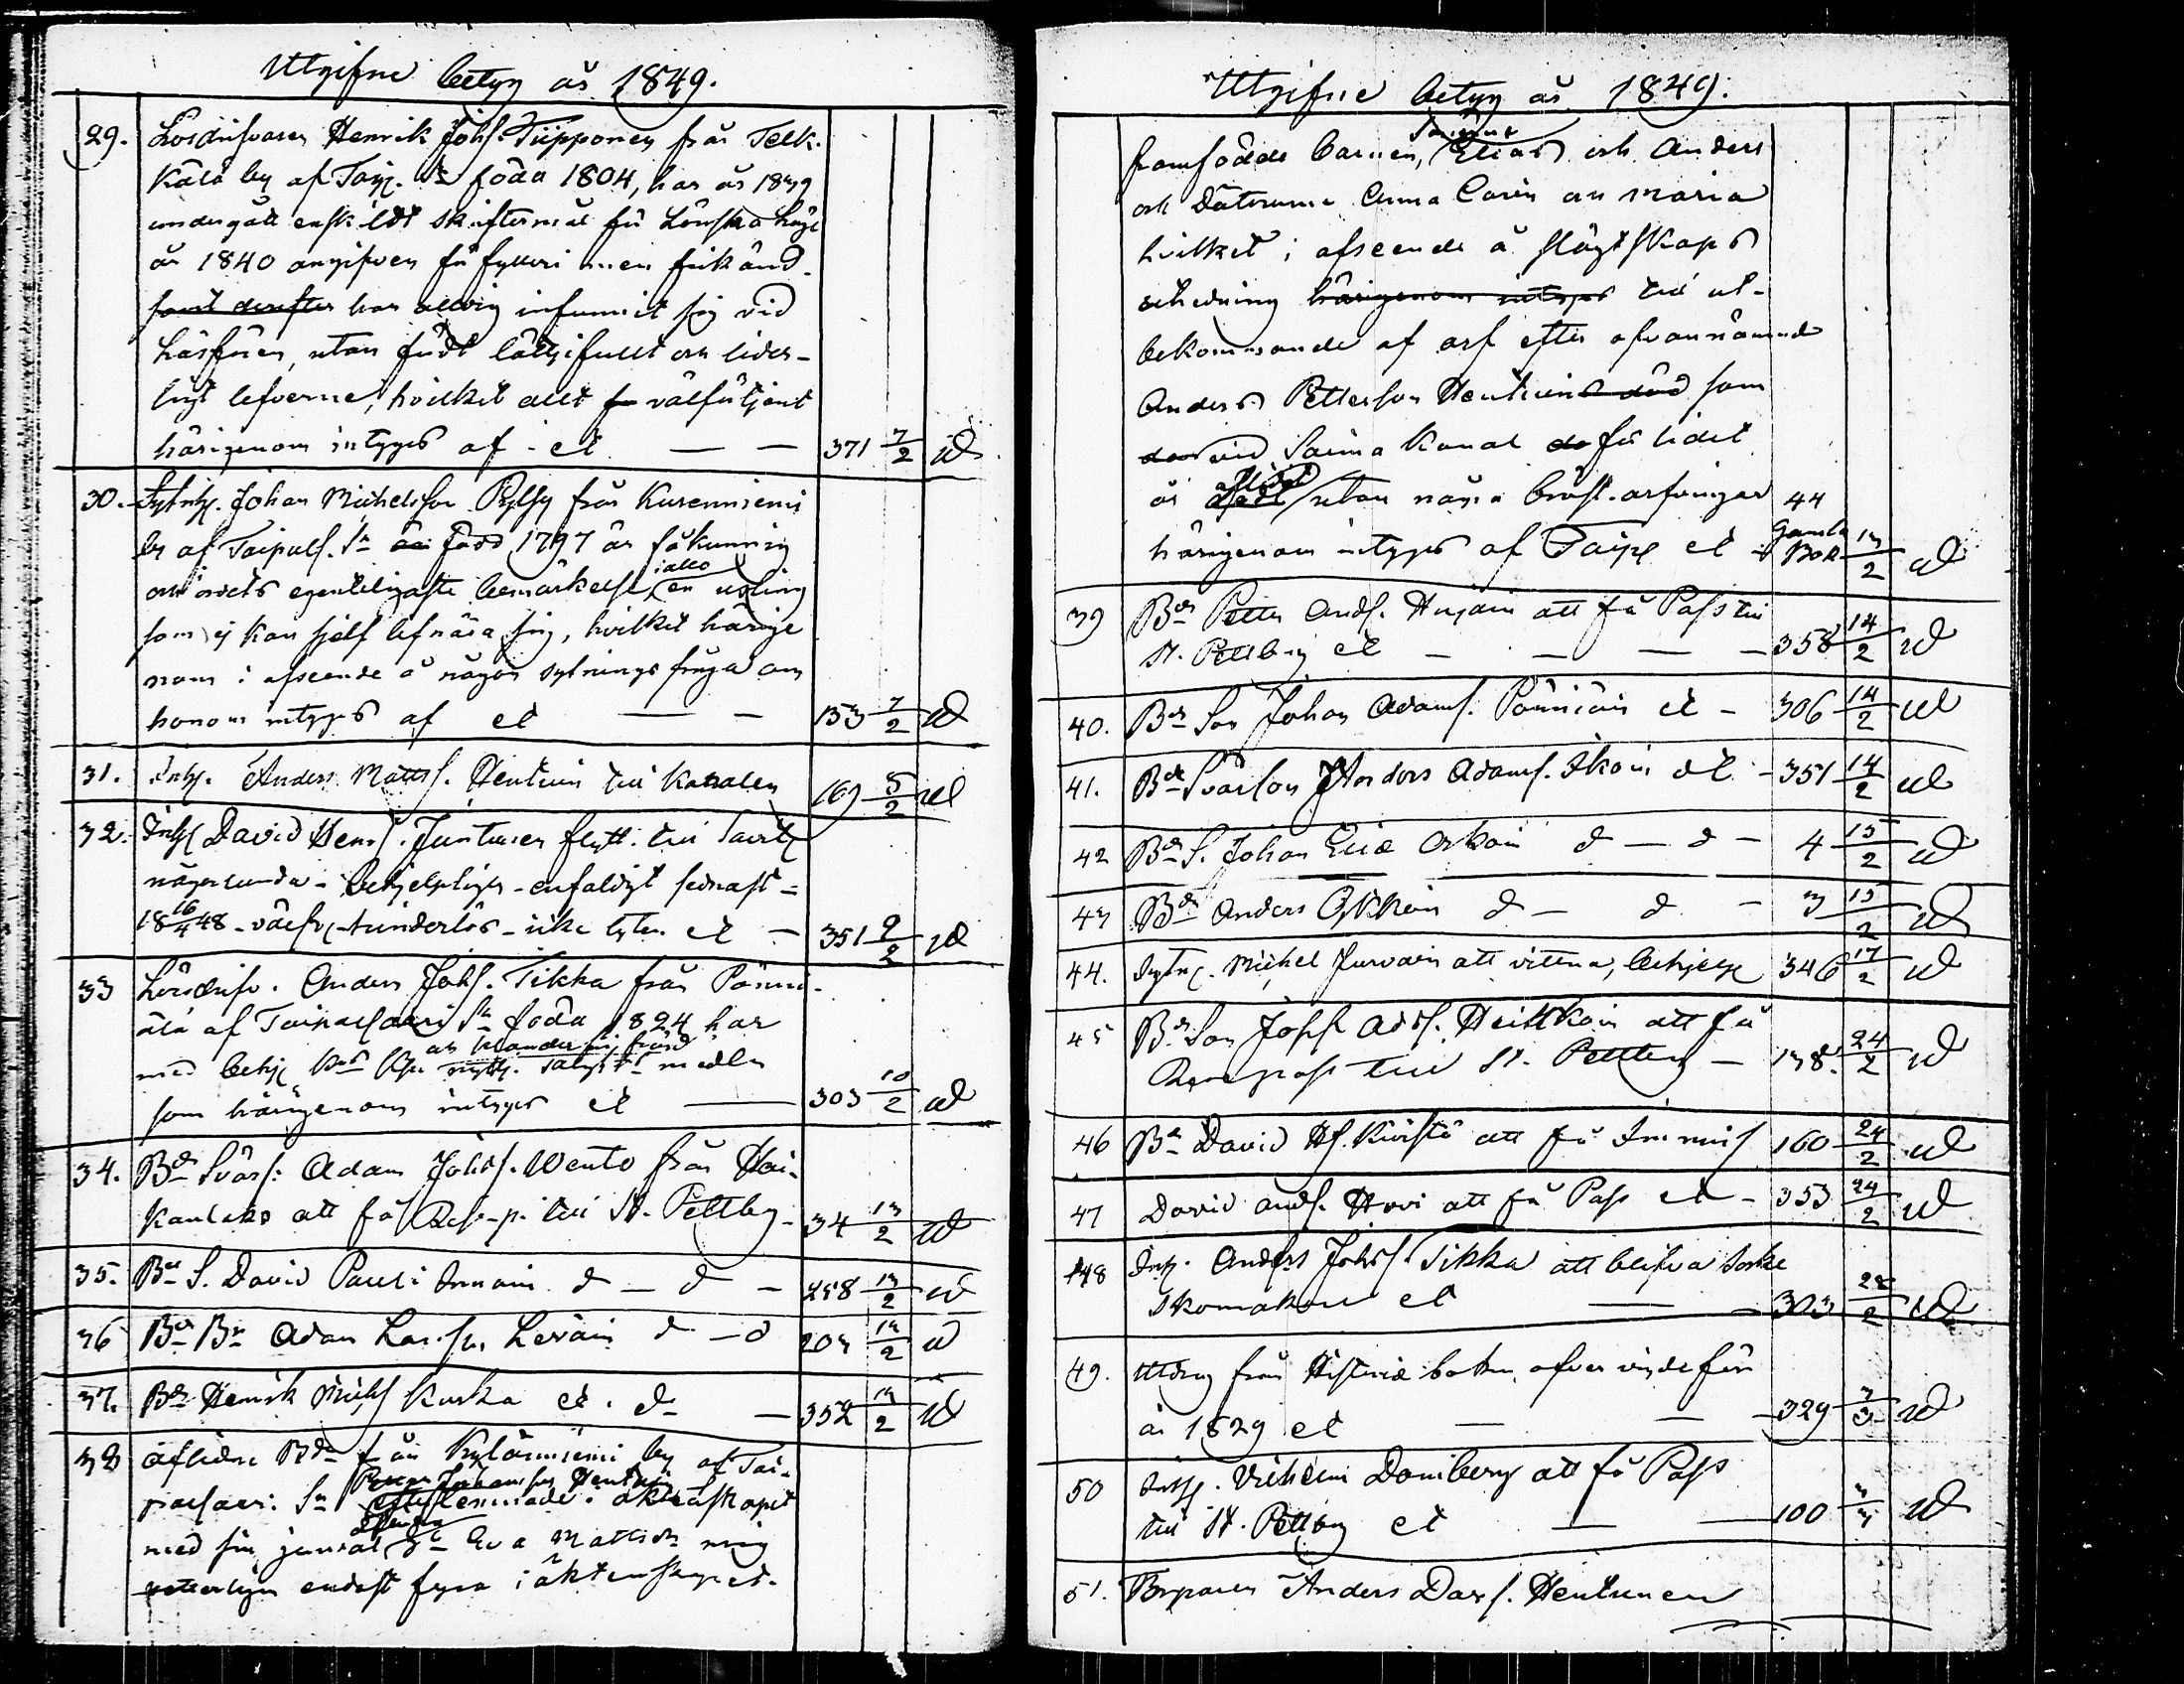 Utgifne betyg år 1849.
29. Lösdrifvaren Henrik Johs. Tiipponen från Telk-
kälä by af Taip. Sn född 1804, har år 1839
undergått enskildt skriftermål för Lönska läge
år 1840 angifven för fylleri men frikänd
samt derefter har aldrig infunnit sig vid
härförin, utan fördt lättjefullt och lider-
ligt lefverne, hvilket allt för välförtjent
härigenom intygas af - et — — 371 7/2 ud
30. Sytnhj. Johan Michelsson Pylsy från Kurenniemi
by af Taipals. Sn är född 1797 är fåkunnig
och ordets egenteligaste bemärkelse, i allo en usling
som ej kan sjelf lifnära sig, hvilket härige
nom i afseende å någon sytnings fråga om
honom intygas af et — — 133 7/2 ud
31. Inhj. Anders Matts. Hentunen till Kanalen 169 5/2 ud
32. Inhs David Henr. Juntunen flytt. till Savitp
någorlunda - behjelpligen - enfaldigt sednast -
18 16/4 48 - värfr - hinderlös - icke lyten et — 351 9/2 ud
33 Lösdrifv. Anders Johs. Tikka från Pönni-
älä af Taipalsaari Sn född 1824 har
med behj
som härigenom intygas et — 303 10/2 ud
34. Bd Svärs: Adam Johs. Wento från Hai-
kanlaks att få Resp-p. till St. Pettbg. 34 13/2 ud
35. Bd S. David Pauli Innain d — d — 258 13/2 ud
36 Bd Br Adam Larsson Leväin d — d 203 13/2 ud
37. Bd Henrik Michs Kurka et. d — 352 13/2 ud
38 aflidne Bdn från Kylänniemi by af Tai-
Petter Johansson Hentunen
palsaari Sn efterlemnade i äktenskapet
med sin jemväl Eva Mattsdr mig
veterligen endast fyra i äktenskapet
Utgifne betyg år 1849.
Sönerne
framfödde barnen, Elias och Anders
och Döttrarne Anna Carin och Maria
hvilket i afseende å slägtskaps
utredning härigenom intygas till ut-
bekommande af arf efter ofvannämnde
Anders Pettersson Hentunens död som
vid Saima Kanal för lidet
aflidit
år död utan några bröst-arfvingar 44
härigenom intygas af Taip et Gamla Bok 13/2 ud
39 Bdn Petter Ands. Hujain att få Pass till
St. Pettbg et — — — 358 14/2 ud
40. Bdn Son Johan Adams. Pönniäin et — 306 14/2 ud
41. Bdn Svärson Anders Adams. Ikoin et — 351 14/2 ud
42 Bdn S. Johan Eliæ Orkoin d — d — 4 15/2 ud
43 Bdn Anders Ojkkoin d — d — 3 15/2 ud
44. Sytn. Michel Jurvain att vittna, behjelp 346 17/2 ud
45 Bdn Son Johs Ads. Heittkoin att få
Respass till St. Pettbg — 138. 24/2 ud
46 Bdn David Hs. Kiviistö att få Immis 160 24/2 ud
47 David Ands. Hovi att få Pass et — 353 24/2 ud
48 Inh. Anders Johs. Tikka att blifva Sockne
Skomakare et — — 303 28/2 ud
49. Utdrag från Historiæ boken öfver vigde från
år 1829 et — — 329 3/3 ud
50 Inhj. Vilhelm Domberg att få Pass
till St. Pettbg et — — 100 3/3 ud
51. Torparen Anders Davs. Hentunen